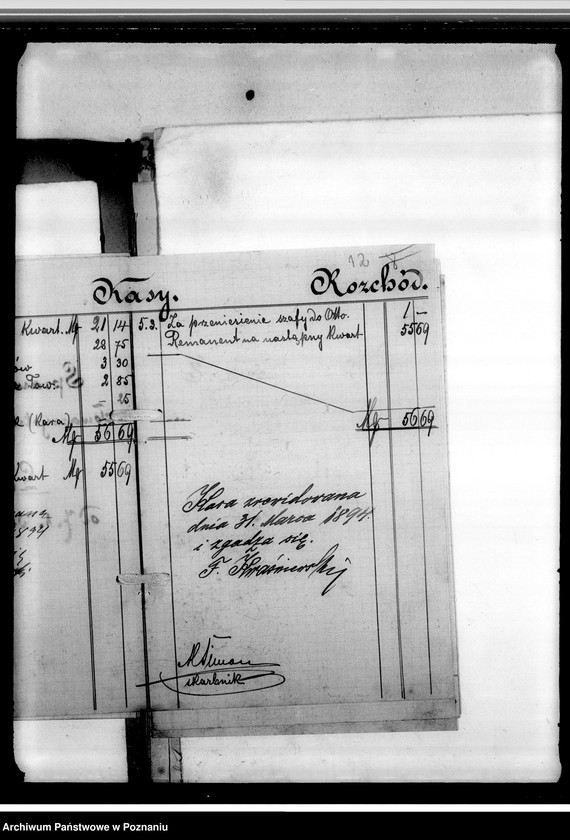 12
Kasy. Rozchód.
Kwart. Mk 21 14
28 75
3 30
2 85
— 25
(Kara)
Mk 56 69
Kwart Mk 55 69
5.3. Za przeniesienie szafy do Otto. 1 —
Remanent na następny kwart 55 69
Mk 56 69
Kasa zrewidowana
dnia 31. Marca 1894.
i zgadza się.
skarbnik
Archiwum Państwowe w Poznaniu